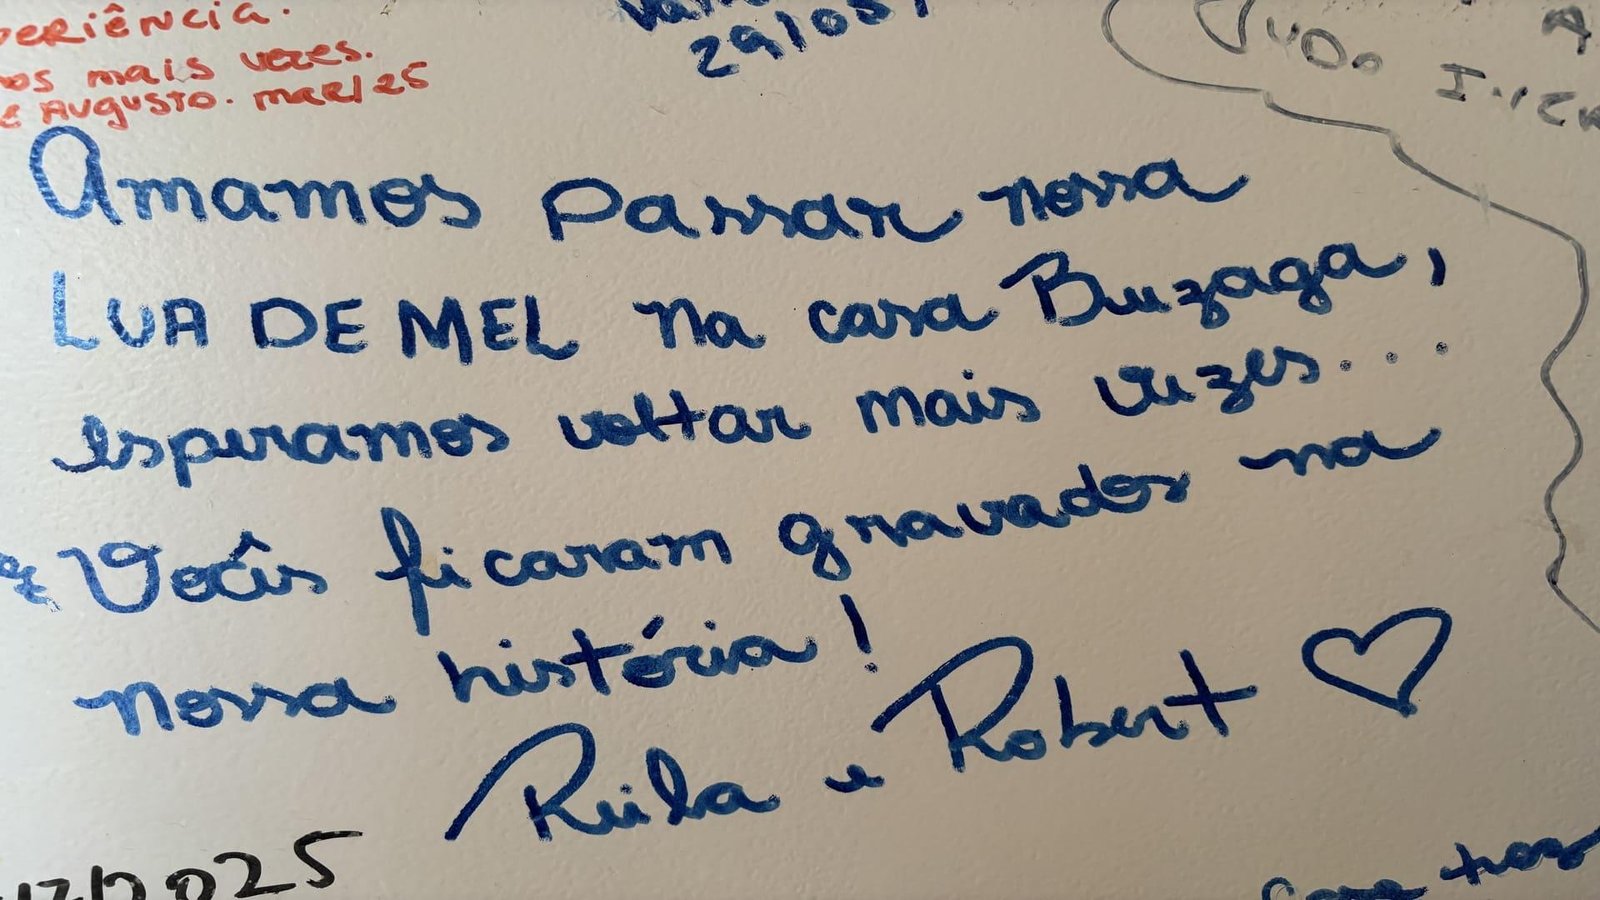 mais vezes.
AUGUSTO. mar/25
29/05
JUDO
Amamos passar nossa
LUA DE MEL na casa Buzaga,
esperamos voltar mais vezes...
Vocês ficaram gravados na
nossa história!
e Robert
2025